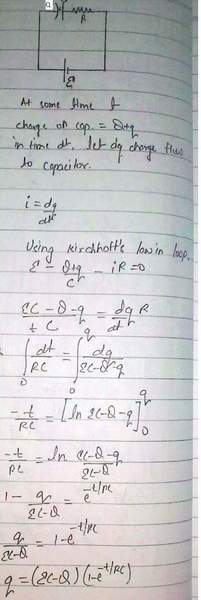 Q
R
ε
At some time t
charge on cap. = Q+q
in time dt, let dq charge flows
to capacitor.
i = dq/dt
Using Kirchhoff's law in loop.
ε - (Q+q)/C - iR = 0
(εC - Q - q)/C = dq/dt R
∫₀ᵗ dt/RC = ∫₀^q dq/(εC-Q-q)
-t/RC = [ln εC-Q-q]₀^q
-t/RC = ln (εC-Q-q)/(εC-Q)
1 - q/(εC-Q) = e^(-t/RC)
q/(εC-Q) = 1-e^(-t/RC)
q = (εC-Q)(1-e^(-t/RC))